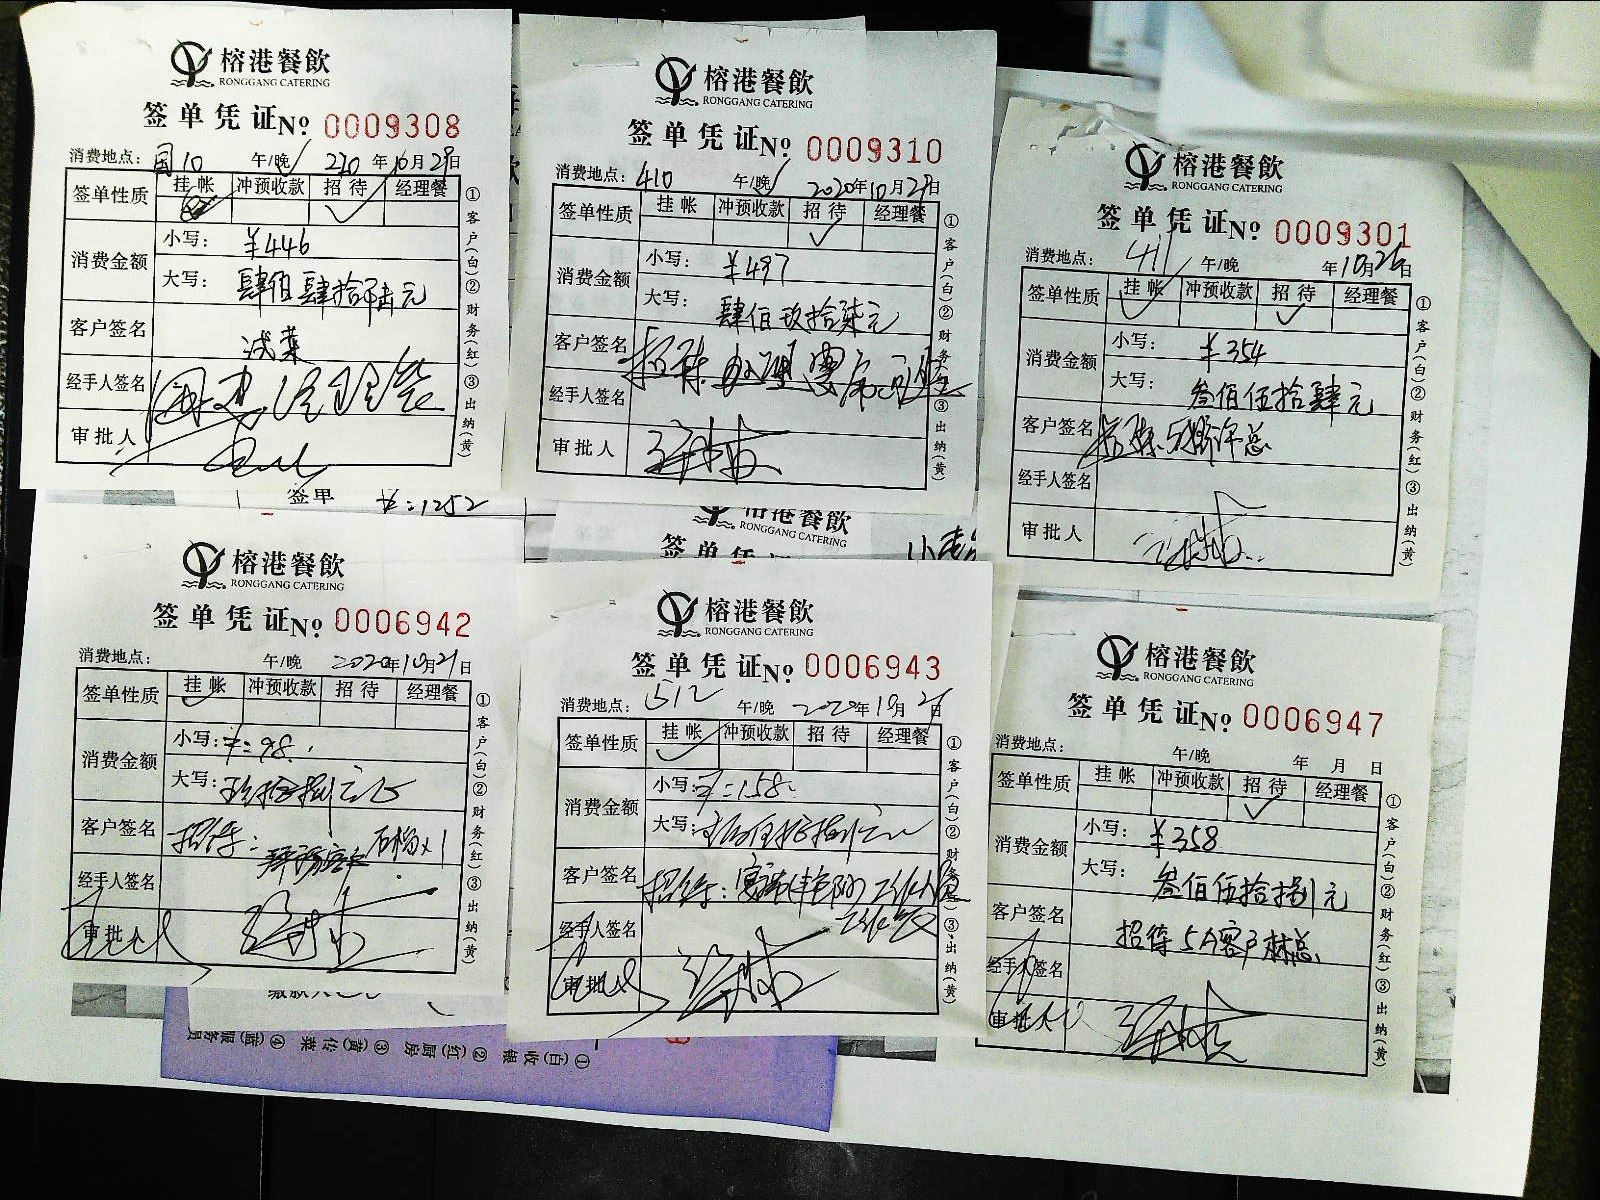 榕港餐飲
RONGGANG CATERING
签单凭证No 0009308
消费地点：国10 午/晚 2020年10月29日
签单性质 挂帐 冲预收款 招待 经理餐
消费金额 小写：¥446
大写：肆佰肆拾陆元
客户签名 试菜
经手人签名
审批人
①客户(白)②财务(红)③出纳(黄)
榕港餐飲
RONGGANG CATERING
签单凭证No 0009310
消费地点：410 午/晚 2020年10月29日
签单性质 挂帐 冲预收款 招待 经理餐
消费金额 小写：¥497
大写：肆佰玖拾柒元
客户签名 招待
经手人签名
审批人
①客户(白)②财务(红)③出纳(黄)
榕港餐飲
RONGGANG CATERING
签单凭证No 0009301
消费地点：411 午/晚 年10月26日
签单性质 挂帐 冲预收款 招待 经理餐
消费金额 小写：¥354
大写：叁佰伍拾肆元
客户签名 招待
经手人签名
审批人
①客户(白)②财务(红)③出纳(黄)
签单 ¥:1252
榕港餐飲
RONGGANG CATERING
签单凭证
榕港餐飲
RONGGANG CATERING
签单凭证No 0006942
消费地点： 午/晚 2020年10月21日
签单性质 挂帐 冲预收款 招待 经理餐
消费金额 小写：¥:98.
大写：玖拾捌元
客户签名 招待：
经手人签名
审批人
①客户(白)②财务(红)③出纳(黄)
榕港餐飲
RONGGANG CATERING
签单凭证No 0006943
消费地点：512 午/晚 2020年10月21日
签单性质 挂帐 冲预收款 招待 经理餐
消费金额 小写：¥:158.
大写：壹佰伍拾捌元
客户签名 招待：
工作餐
经手人签名
审批人
①客户(白)②财务(红)③出纳(黄)
榕港餐飲
RONGGANG CATERING
签单凭证No 0006947
消费地点： 午/晚 年 月 日
签单性质 挂帐 冲预收款 招待 经理餐
消费金额 小写：¥358
大写：叁佰伍拾捌元
客户签名 招待5A客户林总
经手人签名
审批人
①客户(白)②财务(红)③出纳(黄)
缴款人
①(白)收银 ②(红)厨房 ③(黄)传菜 ④(蓝)服务员